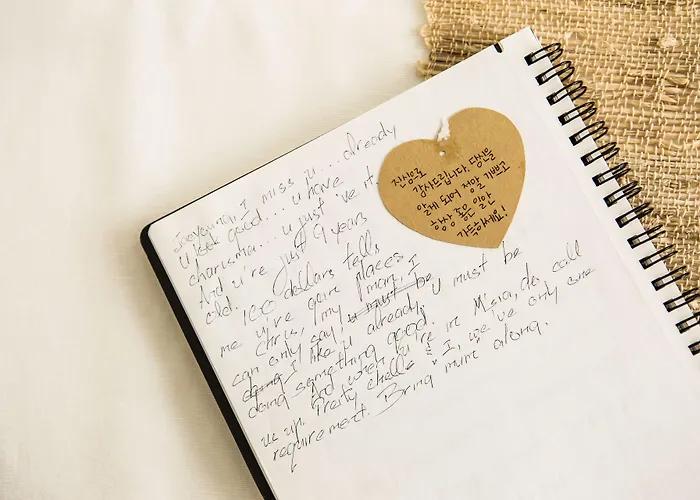 Jaeyoung, I miss u... already
u look good... u have
charisma... u just 've it.
And u're just 9 years
old.
100 dollars tells
me u're goin places
Chris, my man, I
can only say, u must be
I like u already. u must be
doing something good.
And when u're in M'sia, do call
us up. Trusty chelle & I, we've only one
requirement. Bring mimi along.
진심으로
감사드립니다. 당신을
알게 되어 정말 기쁘고
항상 좋은 일만
가득하세요!